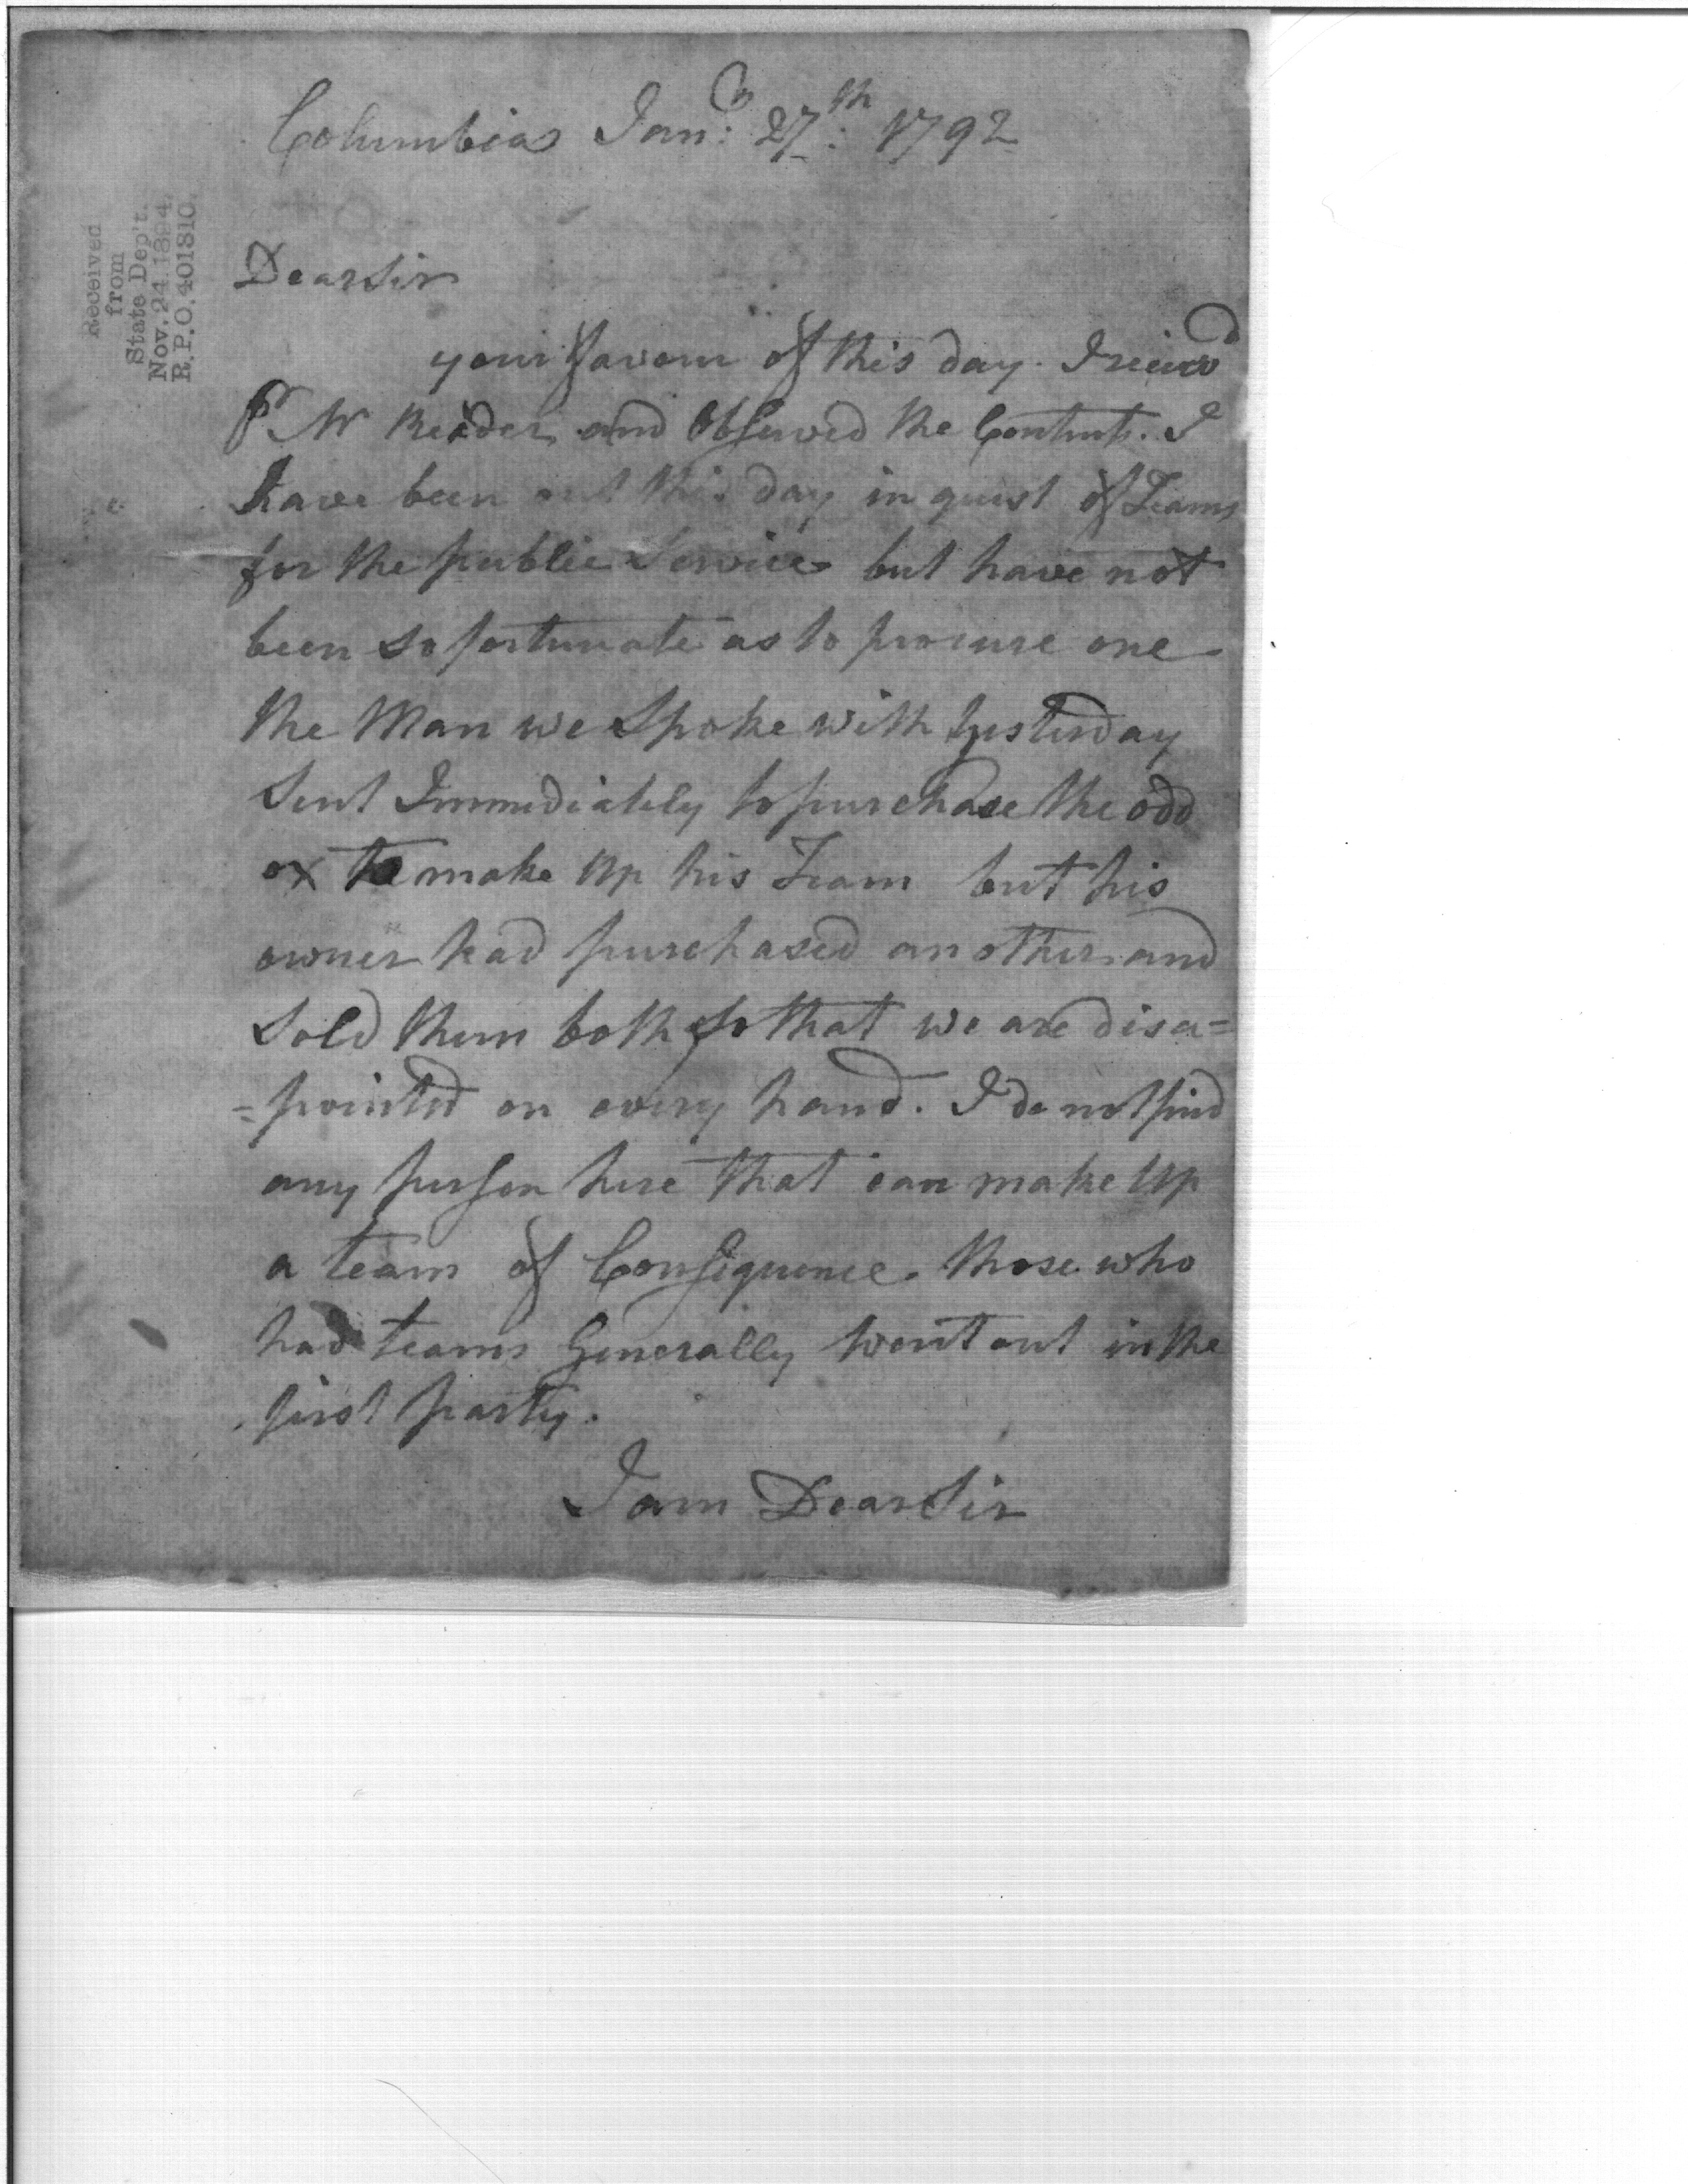 Columbia Jany. 27th: 1792
Received
from
State Dep't.
Nov. 24. 1894.
R.P.O. 401810.
Dear Sir
your favour of this day I reciev'd
Pr Mr and Observed the Contents. I
have been out this day in quest of Teams
for the public Service but have not
been so fortunate as to procure one
the Man we Spoke with Yesterday
Sent Immediately to purchase the odd
ox to make Up his Team but his
owner had purchased another and
Sold them both so that we are disa=
=pointed on every hand. I do not find
any person here that can make Up
a team of Consequence. those who
had teams Generally went out in the
first party.
I am Dear Sir